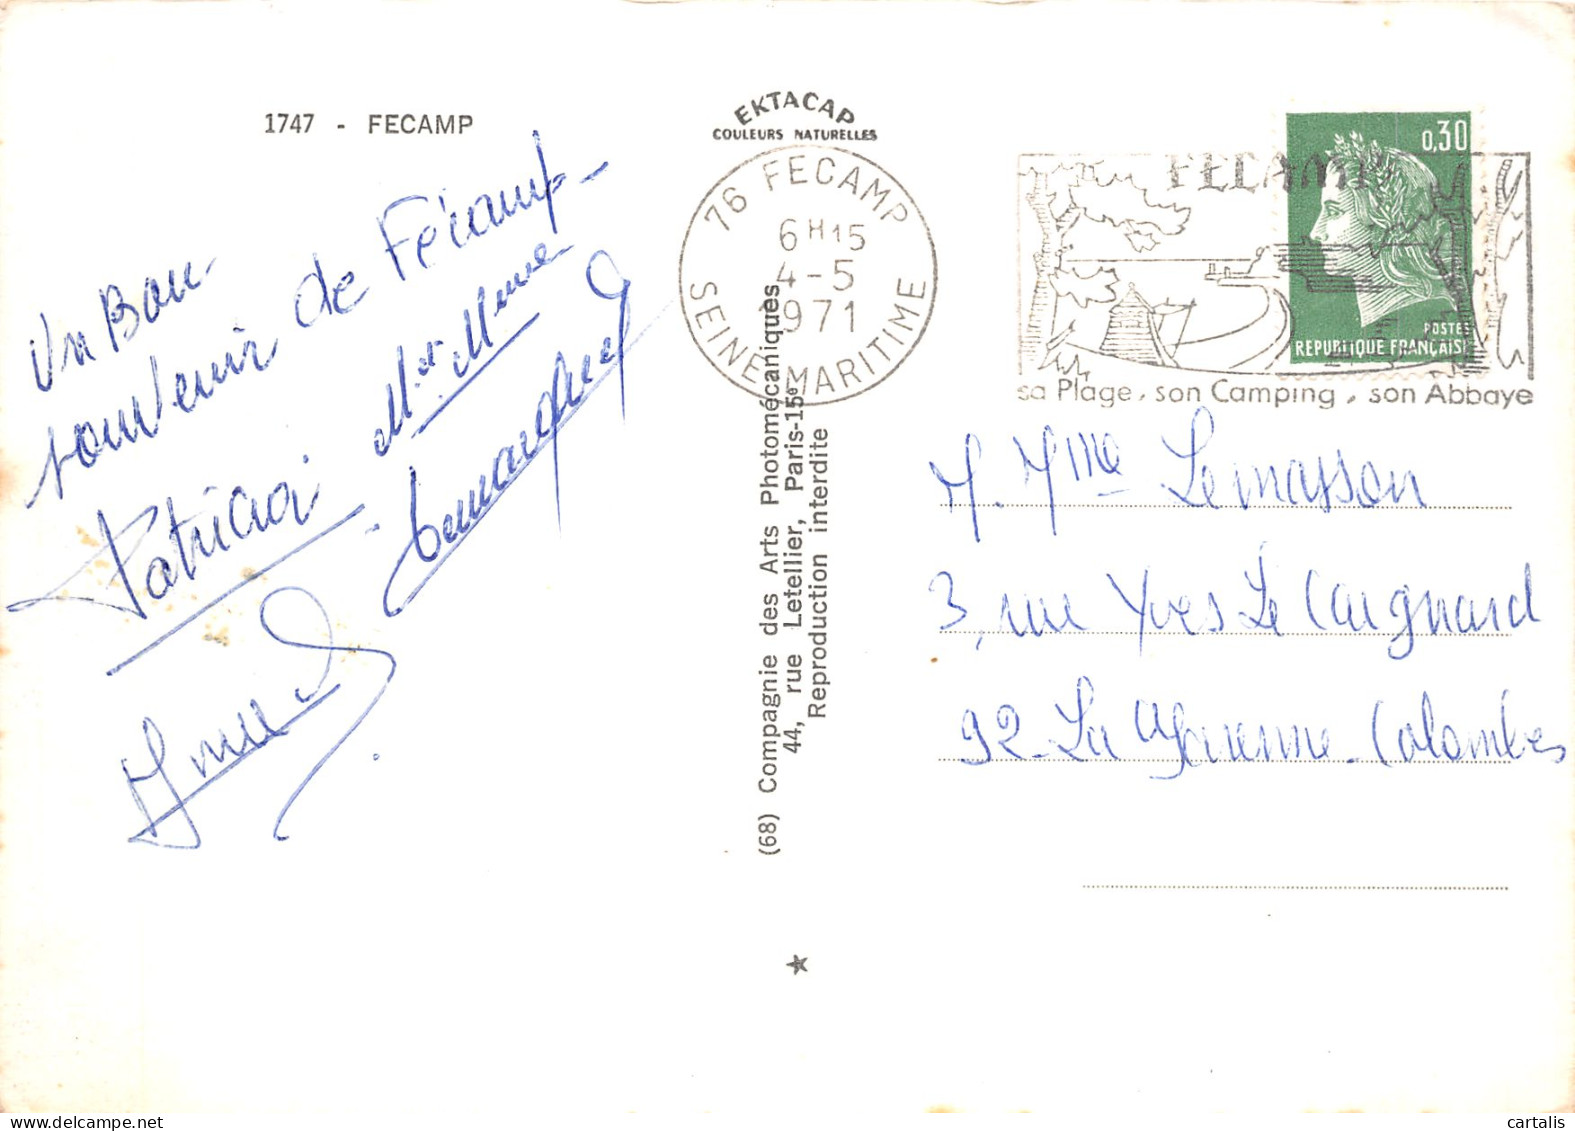 1747 - FECAMP
EKTACAP
COULEURS NATURELLES
76 FECAMP
6H15
4-5
1971
SEINE MARITIME
FECAMP
sa Plage, son Camping, son Abbaye
0,30
POSTES
REPUBLIQUE FRANCAISE
Un Bon
souvenir de Fécamp-
Mr et Mme
Patricia
(68) Compagnie des Arts Photomécaniques
44, rue Letellier, Paris-15e
Reproduction interdite
M. Mme Lemasson
3, rue Yves Le Caignard
92 - La Garenne-Colombes
cartalis
www.delcampe.net